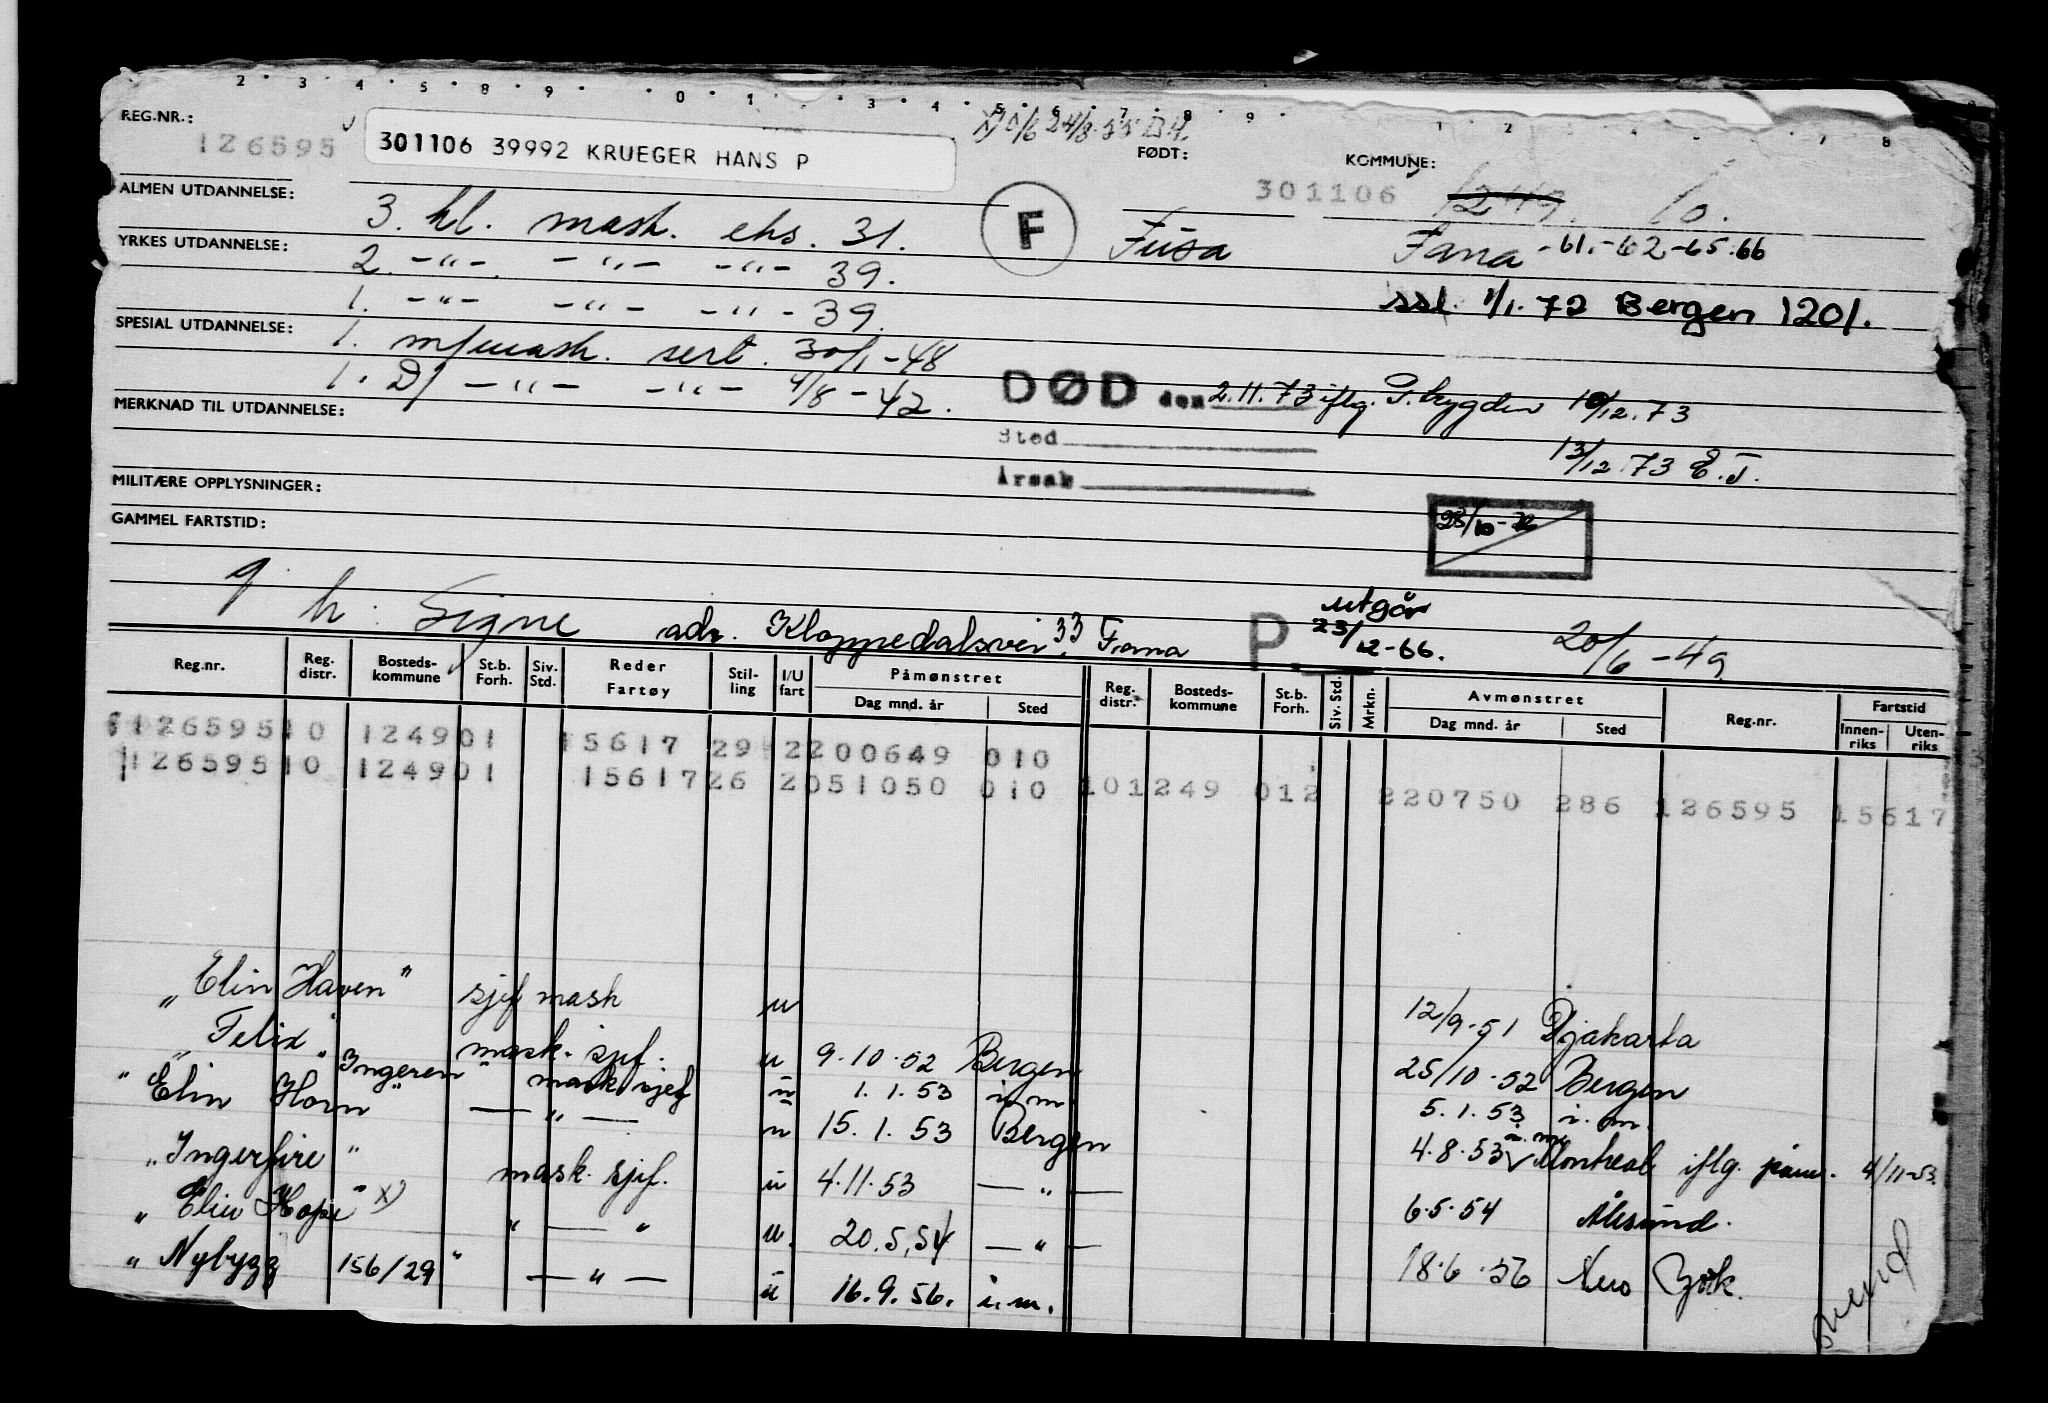 2 · 3 · 4 · 5 · 8 · 9 · · 0 · 1 · · 3 · 4 · 5 · 6 · 7 · 8 · 9 · · 1 · 2 · · 7 · 8
REG.NR.:
126595
301106 39992 KRUEGER HANS P
FØDT:
301106
KOMMUNE:
1249. 10.
ALMEN UTDANNELSE:
3. kl. mask. eks. 31.
F
Fusa
Fana -61.-62-65.66
YRKES UTDANNELSE:
2. -"- -"- -"- 39.
1. -"- -"- -"- 39.
ssl. 1/1. 72 Bergen 1201.
SPESIAL UTDANNELSE:
1. m/mask. sert. 30/1-48
1. D/ -"- -"- 4/8-42.
DØD den 2.11.73 iflg. T.trygden 10/12.73
MERKNAD TIL UTDANNELSE:
Sted
13/12.73 E.T.
Årsak
MILITÆRE OPPLYSNINGER:
GAMMEL FARTSTID:
g.
h. Signe adr. Kloppedalsvei 33, Fana
P.
utgår
23/12-66.
20/6-49
Reg.nr. Reg. distr. Bosteds-kommune St.b. Forh. Siv. Std. Reder Fartøy Stil-ling I/U fart Påmønstret Dag mnd. år Sted Reg. distr. Bosteds-kommune St.b. Forh. Siv. Std. Mrkn. Avmønstret Dag mnd. år Sted Reg.nr. Fartstid Innen-riks Uten-riks
126595 10 124901 15617 29 2200649 010
126595 10 124901 15617 26 2051050 010 101249 012 220750 286 126595 15617
"Elin Haven" sjef mask u 12/9-51 Djakarta
"Felix" mask. sjef. u 9.10.52 Bergen 25/10.52 Bergen
"Ingeren" mask sjef u 1.1.53 i.m. 5.1.53 i.m.
"Elin Horn" -"- u 15.1.53 Bergen 4.8.53 Montreal iflg. påm. 4/11-53.
"Ingerfire" mask. sjef. u 4.11.53 -"- 6.5.54 Ålesund.
"Elin Hope" x) "-" u. 20.5.54 -"- 18.6.56 New York.
"Nybygg 156/29" -"- u 16.9.56. i.m.